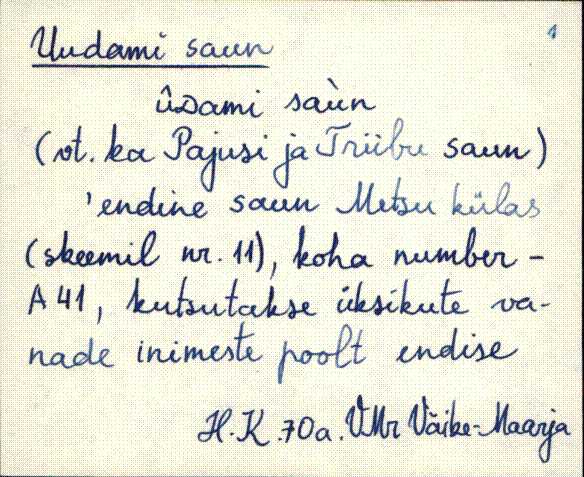 Uudami saun
1
ûᴅami saùn
(vt. ka Pajusi ja Triibu saun)
'endine saun Metsu külas
(skeemil nr. 11), koha number -
A 41, kutsutakse üksikute va-
nade inimeste poolt endise
H.K. 70a. VMr Väike-Maarja